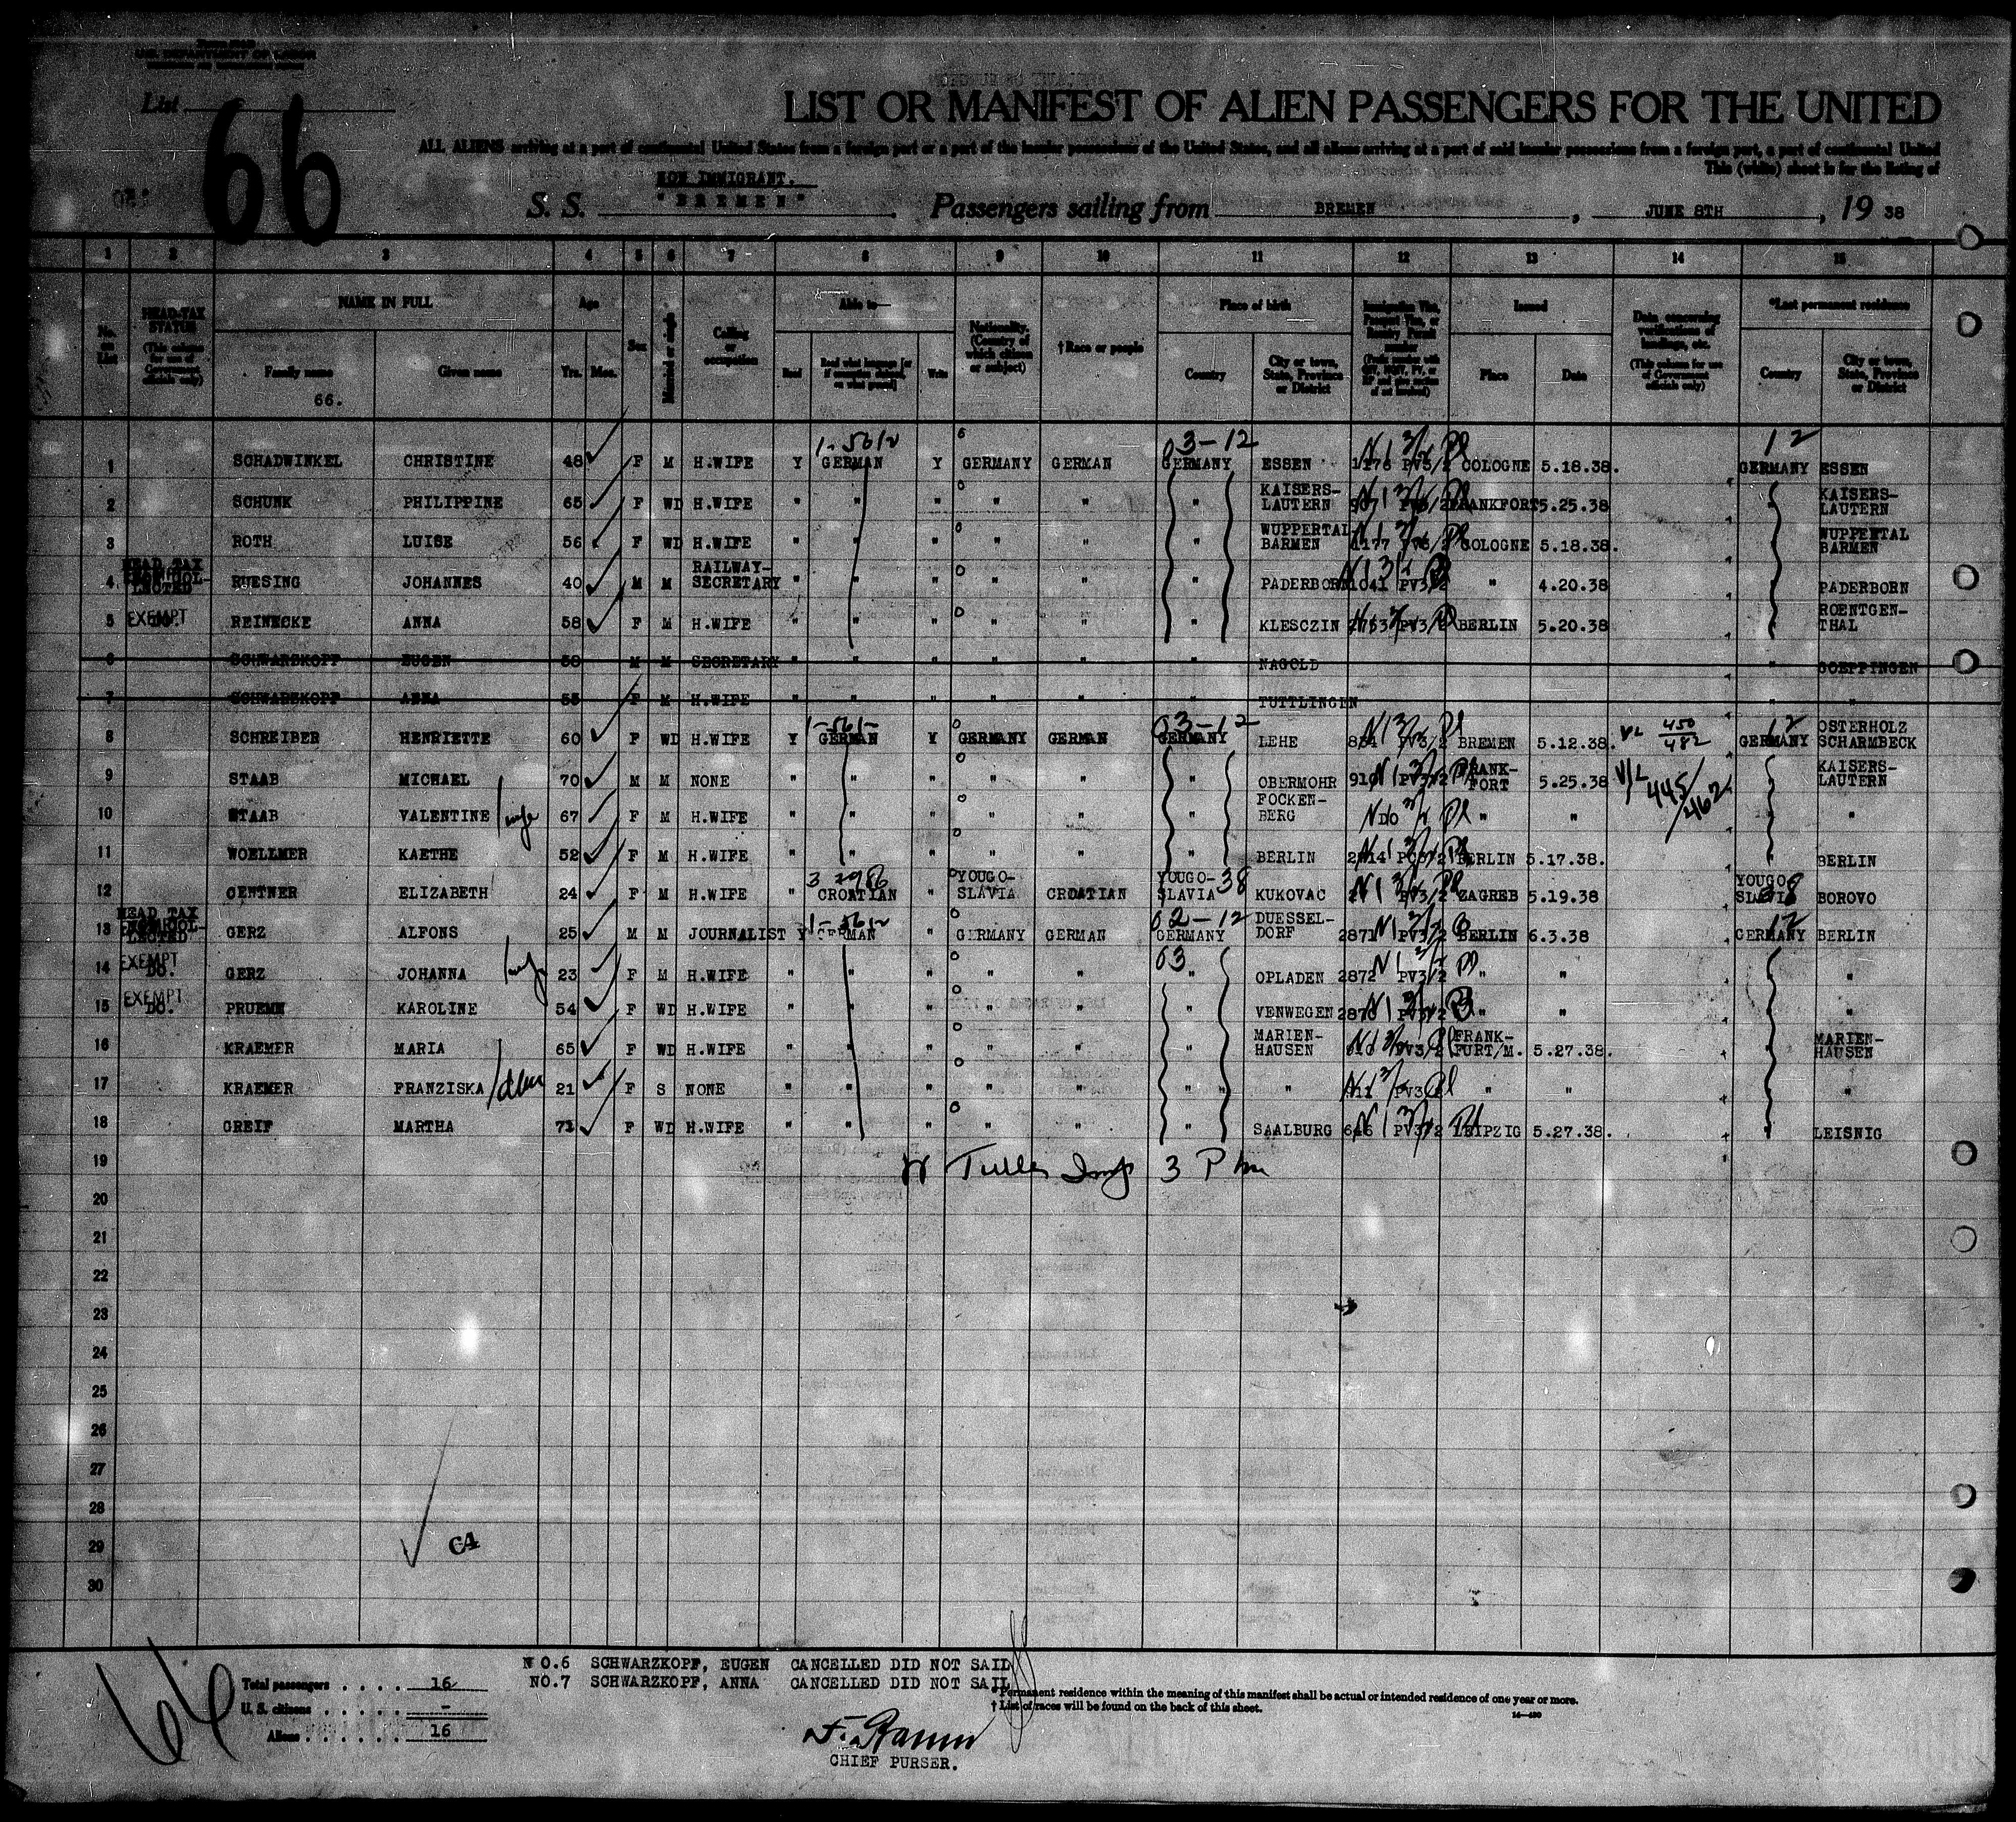 List
66
LIST OR MANIFEST OF ALIEN PASSENGERS FOR THE UNITED
ALL ALIENS arriving at a port of continental United States from a foreign port or a port of the insular possessions of the United States, and all aliens arriving at a port of said insular possessions from a foreign port, a port of continental United
This (white) sheet is for the listing of
NON IMMIGRANT.
S. S. "BREMEN" , Passengers sailing from BREMEN , JUNE 8TH , 19 38
1 2 3 4 5 6 7 8 9 10 11 12 13 14 15
No. on List
HEAD-TAX STATUS (This column for use of Government officials only)
NAME IN FULL Family name Given name
66.
Age Yrs. Mos.
Sex
Married or single
Calling or occupation
Able to— Read Read what language [or if exemption claimed, on what ground] Write
Nationality. (Country of which citizen or subject)
† Race or people
Place of birth Country City or town, State, Province or District
Issued Place Date
Data concerning verifications of landings, etc. (This column for use of Government officials only)
*Last permanent residence Country City or town, State, Province or District
03-12 12
1 SCHADWINKEL CHRISTINE 48 F M H.WIFE Y GERMAN Y GERMANY GERMAN GERMANY ESSEN 1176 PV3/2 COLOGNE 5.18.38. GERMANY ESSEN
2 SCHUNK PHILIPPINE 65 F WD H.WIFE " " " " " " KAISERS-LAUTERN 907 PV3/2 FRANKFORT 5.25.38 KAISERS-LAUTERN
3 ROTH LUISE 56 F WD H.WIFE " " " " " " WUPPERTAL BARMEN 1177 PV3/2 COLOGNE 5.18.38. WUPPERTAL BARMEN
HEAD TAX
4 RUESING JOHANNES 40 M M RAILWAY-SECRETARY " " " " " " PADERBORN 1041 PV3/2 " 4.20.38 PADERBORN
5 EXEMPT REINECKE ANNA 58 F M H.WIFE " " " " " " KLESCZIN PV3/2 BERLIN 5.20.38 ROENTGEN-THAL
6 SCHWARZKOPF EUGEN 58 M M SECRETARY " " " " " " NAGOLD " GOEPPINGEN
7 SCHWARZKOPF ANNA 55 F M H.WIFE " " " " " " TUTTLINGEN " "
03-12 450/482 12
8 SCHREIBER HENRIETTE 60 F WD H.WIFE Y GERMAN Y GERMANY GERMAN GERMANY LEHE PV3/2 BREMEN 5.12.38. GERMANY OSTERHOLZ SCHARMBECK
9 STAAB MICHAEL 70 M M NONE " " " " " " OBERMOHR 910 PV3/2 FRANK-FORT 5.25.38 V/L 445/462 KAISERS-LAUTERN
10 STAAB VALENTINE 67 F M H.WIFE " " " " " " FOCKEN-BERG DO " " "
11 WOELLMER KAETHE 52 F M H.WIFE " " " " " " BERLIN BERLIN 5.17.38. BERLIN
12 CENTNER ELIZABETH 24 F M H.WIFE " CROATIAN " YOUGO-SLAVIA CROATIAN YOUGO-SLAVIA 38 KUKOVAC PV3/2 ZAGREB 5.19.38 YOUGO-SLAVIA BOROVO
HEAD TAX 02-12 12
13 GERZ ALFONS 25 M M JOURNALIST Y GERMAN " GERMANY GERMAN GERMANY DUESSEL-DORF 2871 PV3/2 BERLIN 6.3.38 GERMANY BERLIN
14 EXEMPT DO. GERZ JOHANNA 23 F M H.WIFE " " " " " 03 " OPLADEN 2872 PV3/2 " " "
15 EXEMPT DO. PRUEMM KAROLINE 54 F WD H.WIFE " " " " " " VENWEGEN 2870 PV3/2 " " "
16 KRAEMER MARIA 65 F WD H.WIFE " " " " " " MARIEN-HAUSEN PV3/2 FRANK-FURT/M. 5.27.38. MARIEN-HAUSEN
17 KRAEMER FRANZISKA 21 F S NONE " " " " " " " PV3/2 " " "
18 GREIF MARTHA 71 F WD H.WIFE " " " " " " SAALBURG 646 PV3/2 LEIPZIG 5.27.38. LEISNIG
19
20
21
22
23
24
25
26
27
28
29
30
C4
NO.6 SCHWARZKOPF, EUGEN CANCELLED DID NOT SAIL
NO.7 SCHWARZKOPF, ANNA CANCELLED DID NOT SAIL
Total passengers . . . . 16
U. S. citizens . . . . . -
Aliens . . . . . . 16
66
* Permanent residence within the meaning of this manifest shall be actual or intended residence of one year or more.
† List of races will be found on the back of this sheet.
CHIEF PURSER.